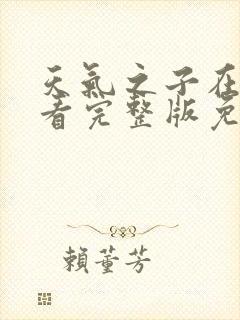 天氣之子在
看完整版免
賴董芳